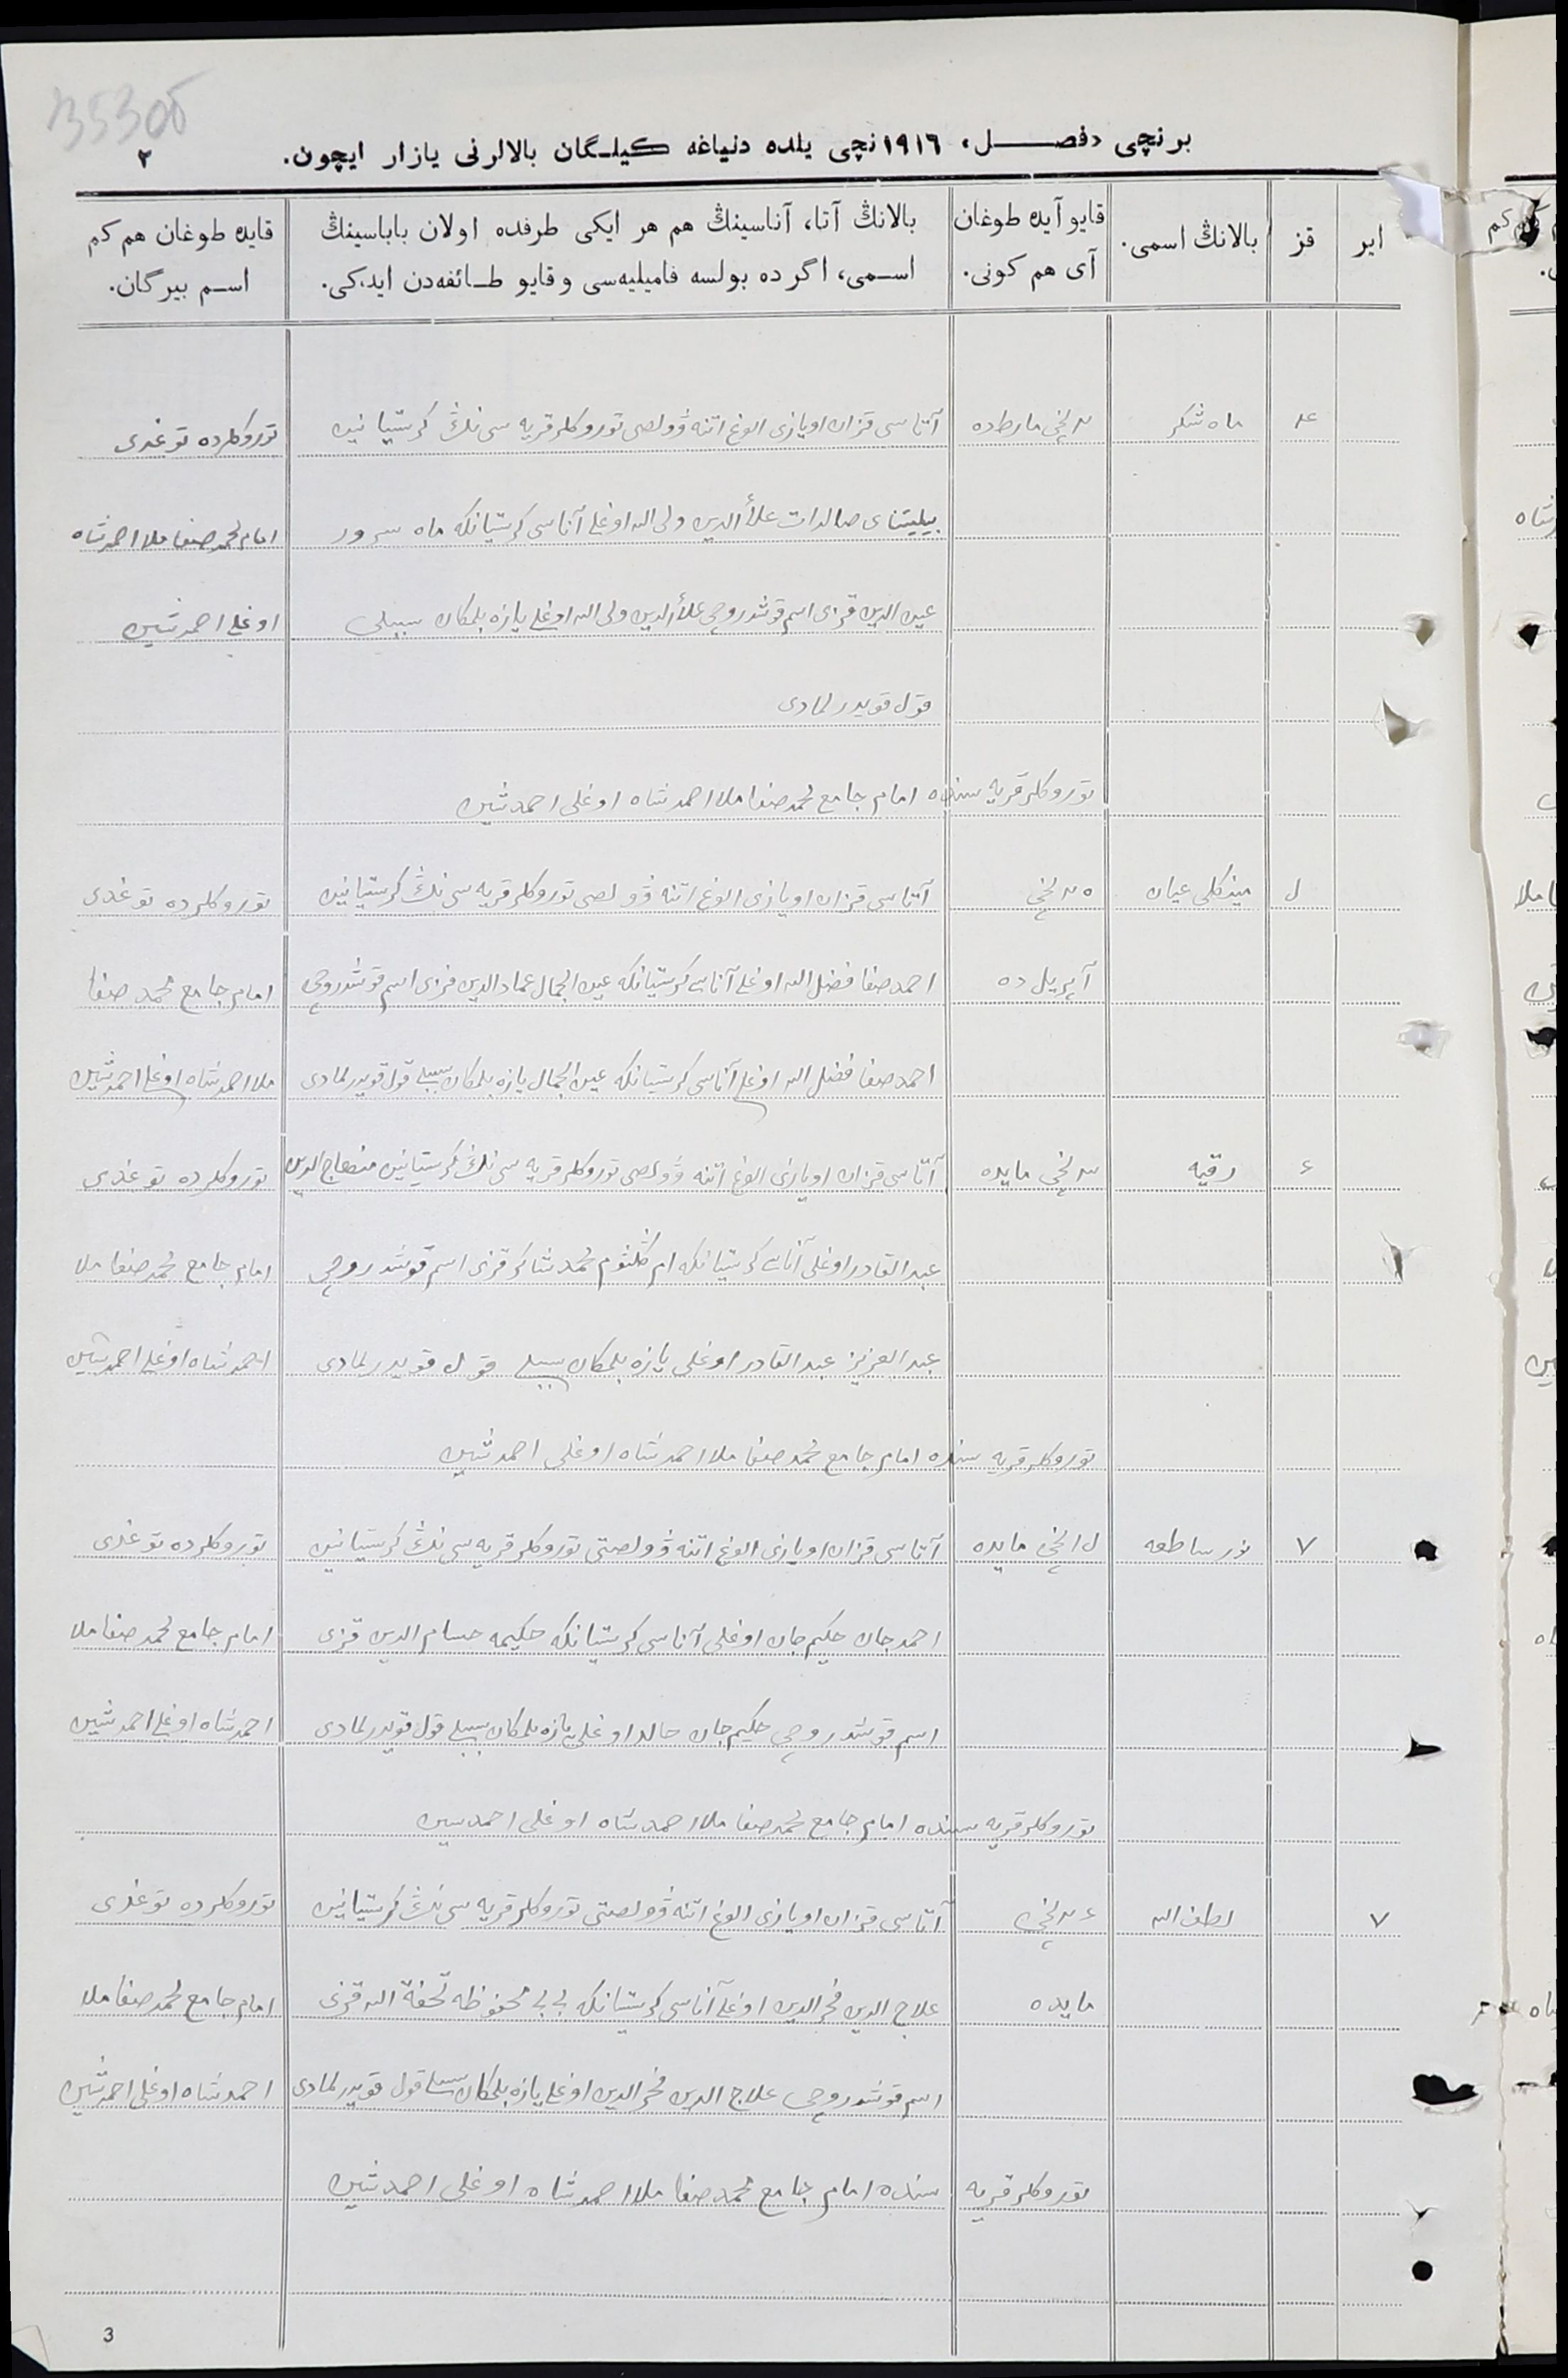 35305
برنچی «فصل» ١٩١٦نچی یلده دنیاغه کیلگان بالالرنی یازار ایچون. ٢
ایر
قز
بالانڭ اسمی.
قایو آیده طوغان آی هم کونی.
بالانڭ آتا، آناسینڭ هم هر ایکی طرفده اولان باباسینڭ
اسمی، اگر ده بولسه فامیلیه‌سی و قایو طائفه‌دن ایدکی.
قایده طوغان هم کم
اسم بیرگان.
ماه شکر مارطده آتاسی قزان اویازی الوغ اتنه ڤولصی توروکلر قریه سی نڭ کرستیانین توروکلرده توغدی
بیلیتنای صالدات علأالدین ولی الله اوغلی آناسی کرستیانکه ماه سرور امام محمد صفا ملا احمدشاه
عین الدین قزی اسم قوشدروچی علأالدین ولی الله اوغلی یازه بلمکان سببلی اوغلی احمدشین
قول قویدرلمادی
توروکلر قریه سنده امام جامع محمد صفا ملا احمدشاه اوغلی احمدشین
مینکلی عیان آتاسی قزان اویازی الوغ اتنه ڤولصی توروکلر قریه سی نڭ کرستیانین توروکلرده توغدی
آپریل ده احمد صفا فضل الله اوغلی آناسی کرستیانکه عین الجمال عماد الدین قزی اسم قوشدروچی امام جامع محمد صفا
احمد صفا فضل الله اوغلی آناسی کرستیانکه عین الجمال یازه بلمکان سببلی قول قویدرلمادی ملا احمدشاه اوغلی احمدشین
رقیه مایده آتاسی قزان اویازی الوغ اتنه ڤولصی توروکلر قریه سی نڭ کرستیانین منهاج الدین توروکلرده توغدی
عبد القادر اوغلی آناسی کرستیانکه ام کلثوم محمد شاکر قزی اسم قوشدروچی امام جامع محمد صفا ملا
عبد العزیز عبد القادر اوغلی یازه بلمکان سببلی قول قویدرلمادی احمدشاه اوغلی احمدشین
توروکلر قریه سنده امام جامع محمد صفا ملا احمدشاه اوغلی احمدشین
٧ نور ساطعه مایده آتاسی قزان اویازی الوغ اتنه ڤولصتی توروکلر قریه سی نڭ کرستیانین توروکلرده توغدی
احمدجان حکیم جان اوغلی آناسی کرستیانکه حکیمه حسام الدین قزی امام جامع محمد صفا ملا
اسم قوشدروچی حکیم جان خالد اوغلی یازه بلمکان سببلی قول قویدرلمادی احمدشاه اوغلی احمدشین
توروکلر قریه سنده امام جامع محمد صفا ملا احمدشاه اوغلی احمدسین
٧ لطف الله آتاسی قزان اویازی الوغ اتنه ڤولصتی توروکلر قریه سی نڭ کرستیانین توروکلرده توغدی
مایده علاج الدین فخر الدین اوغلی آناسی کرستیانکه بی بی محفوظه تحفة الله قزی امام جامع محمد صفا ملا
اسم قوشدروچی علاج الدین فخر الدین اوغلی یازه بلمکان سببلی قول قویدرلمادی احمدشاه اوغلی احمدشین
توروکلر قریه سنده امام جامع محمد صفا ملا احمدشاه اوغلی احمدشین
3